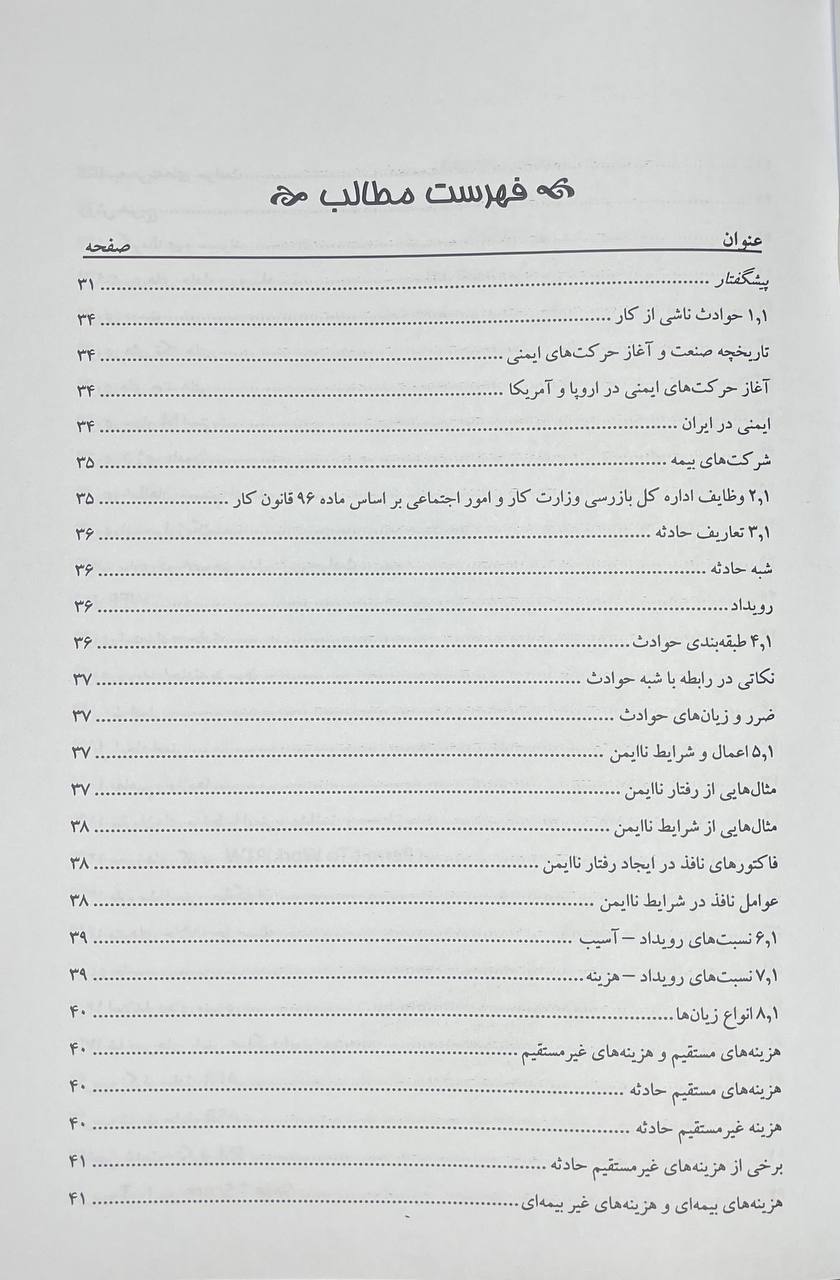 فهرست مطالب
عنوان صفحه
پیشگفتار ........ ۳۱
۱,۱ حوادث ناشی از کار ........ ۳۴
تاریخچه صنعت و آغاز حرکت‌های ایمنی ........ ۳۴
آغاز حرکت‌های ایمنی در اروپا و آمریکا ........ ۳۴
ایمنی در ایران ........ ۳۴
شرکت‌های بیمه ........ ۳۵
۲,۱ وظایف اداره کل بازرسی وزارت کار و امور اجتماعی بر اساس ماده ۹۶ قانون کار ........ ۳۵
۳,۱ تعاریف حادثه ........ ۳۶
شبه حادثه ........ ۳۶
رویداد ........ ۳۶
۴,۱ طبقه‌بندی حوادث ........ ۳۶
نکاتی در رابطه با شبه حوادث ........ ۳۷
ضرر و زیان‌های حوادث ........ ۳۷
۵,۱ اعمال و شرایط ناایمن ........ ۳۷
مثال‌هایی از رفتار ناایمن ........ ۳۷
مثال‌هایی از شرایط ناایمن ........ ۳۸
فاکتورهای نافذ در ایجاد رفتار ناایمن ........ ۳۸
عوامل نافذ در شرایط ناایمن ........ ۳۸
۶,۱ نسبت‌های رویداد – آسیب ........ ۳۹
۷,۱ نسبت‌های رویداد – هزینه ........ ۳۹
۸,۱ انواع زیان‌ها ........ ۴۰
هزینه‌های مستقیم و هزینه‌های غیرمستقیم ........ ۴۰
هزینه‌های مستقیم حادثه ........ ۴۰
هزینه غیرمستقیم حادثه ........ ۴۰
برخی از هزینه‌های غیرمستقیم حادثه ........ ۴۱
هزینه‌های بیمه‌ای و هزینه‌های غیر بیمه‌ای ........ ۴۱